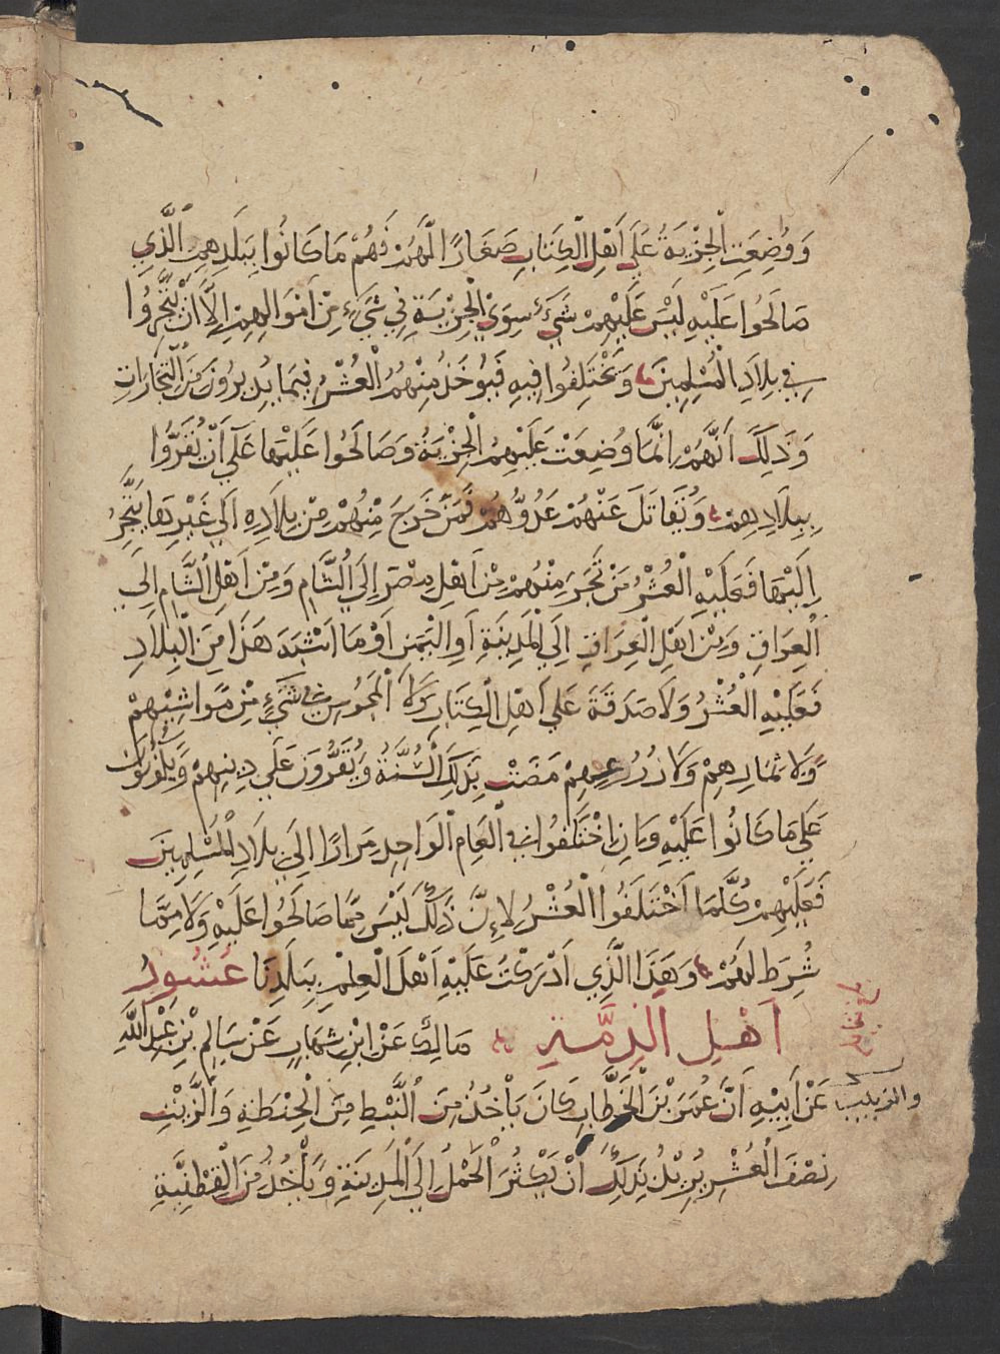 وَوُضِعَتِ الْجِزْيَةُ عَلَى أَهْلِ الْكِتَابِ صَغَارًا لَّهُمْ فَهُمْ مَا كَانُوا بِبَلَدِهِمِ الَّذِي
صَالَحُوا عَلَيْهِ لَيْسَ عَلَيْهِمْ شَيْءٌ سِوَى الْجِزْيَةِ فِي شَيْءٍ مِنْ أَمْوَالِهِمْ إِلَّا أَنْ يَتَّجِرُوا
فِي بِلَادِ الْمُسْلِمِينَ وَيَخْتَلِفُوا فِيهِ فَيُوخَذُ مِنْهُمُ الْعُشْرُ فِيمَا يُدِيرُونَ مِنَ التِّجَارَاتِ
وَذَلِكَ أَنَّهُمْ إِنَّمَا وُضِعَتْ عَلَيْهِمُ الْجِزْيَةُ وَصَالَحُوا عَلَيْهَا عَلَى أَنْ يُقَرُّوا
بِبِلَادِهِمْ وَيُقَاتَلَ عَنْهُمْ عَدُوُّهُمْ فَمَنْ خَرَجَ مِنْهُمْ مِنْ بِلَادِهِ إِلَى غَيْرِهَا يَتَّجِرُ
إِلَيْهَا فَعَلَيْهِ الْعُشْرُ مَنْ تَجَرَ مِنْهُمْ مِنْ أَهْلِ مِصْرَ إِلَى الشَّامِ وَمِنْ أَهْلِ الشَّامِ إِلَى
الْعِرَاقِ وَمِنْ أَهْلِ الْعِرَاقِ إِلَى الْمَدِينَةِ أَوِ الْيَمَنِ أَوْ مَا أَشْبَهَ هَذَا مِنَ الْبِلَادِ
فَعَلَيْهِ الْعُشْرُ وَلَا صَدَقَةَ عَلَى أَهْلِ الْكِتَابِ وَلَا الْمَجُوسِ فِي شَيْءٍ مِنْ مَوَاشِيهِمْ
وَلَا ثِمَارِهِمْ وَلَا زُرُوعِهِمْ مَضَتْ بِذَلِكَ السُّنَّةُ وَيُقَرُّونَ عَلَى دِينِهِمْ وَيَكُونُونَ
عَلَى مَا كَانُوا عَلَيْهِ وَإِنِ اخْتَلَفُوا فِي الْعَامِ الْوَاحِدِ مِرَارًا إِلَى بِلَادِ الْمُسْلِمِينَ
فَعَلَيْهِمْ كُلَّمَا اخْتَلَفُوا الْعُشْرُ لِإِنَّ ذَلِكَ لَيْسَ مِمَّا صَالَحُوا عَلَيْهِ وَلَا مِمَّا
شُرِطَ لَهُمْ وَهَذَا الَّذِي أَدْرَكْتُ عَلَيْهِ أَهْلَ الْعِلْمِ بِبَلَدِنَا عُشُورُ
أَهْلِ الذِّمَّةِ مَالِكٌ عَنْ ابْنِ شِهَابٍ عَنْ سَالِمِ بْنِ عَبْدِ اللَّهِ
عَنْ أَبِيهِ أَنَّ عُمَرَ بْنَ الْخَطَّابِ كَانَ يَأْخُذُ مِنَ النَّبَطِ مِنَ الْحِنْطَةِ وَالزَّيْتِ
والزبيب
نِصْفَ الْعُشْرِ يُرِيدُ بِذَلِكَ أَنْ يَكْثُرَ الْحَمْلُ إِلَى الْمَدِينَةِ وَيَأْخُذُ مِنَ الْقِطْنِيَّةِ